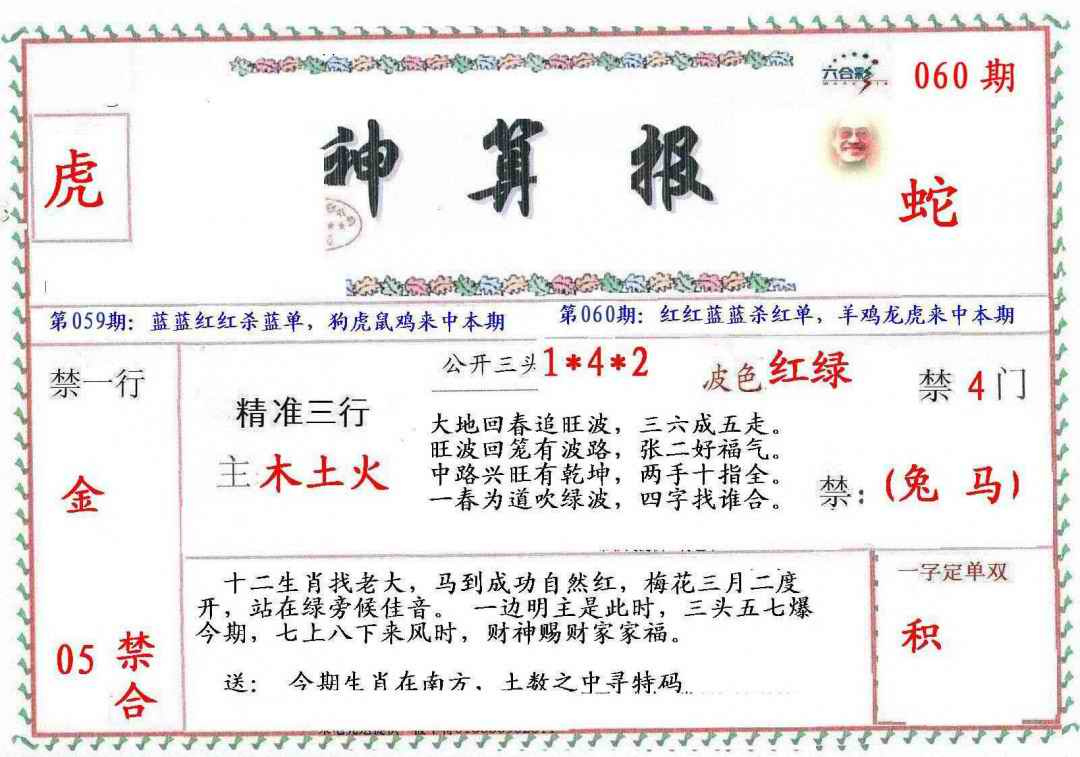 六合彩
060期
虎
神算报
蛇
第059期：蓝蓝红红杀蓝单，狗虎鼠鸡来中本期
第060期：红红蓝蓝杀红单，羊鸡龙虎来中本期
禁一行
金
05禁合
精准三行
主木土火
公开三头1*4*2
波色红绿
大地回春追旺波，三六成五走。
旺波回笼有波路，张二好福气。
中路兴旺有乾坤，两手十指全。
一春为道吹绿波，四字找谁合。
禁4门
禁：(兔 马)
十二生肖找老大，马到成功自然红，梅花三月二度
开，站在绿旁候佳音。 一边明主是此时，三头五七爆
今期，七上八下来风时，财神赐财家家福。
送： 今期生肖在南方，土数之中寻特码
一字定单双
积